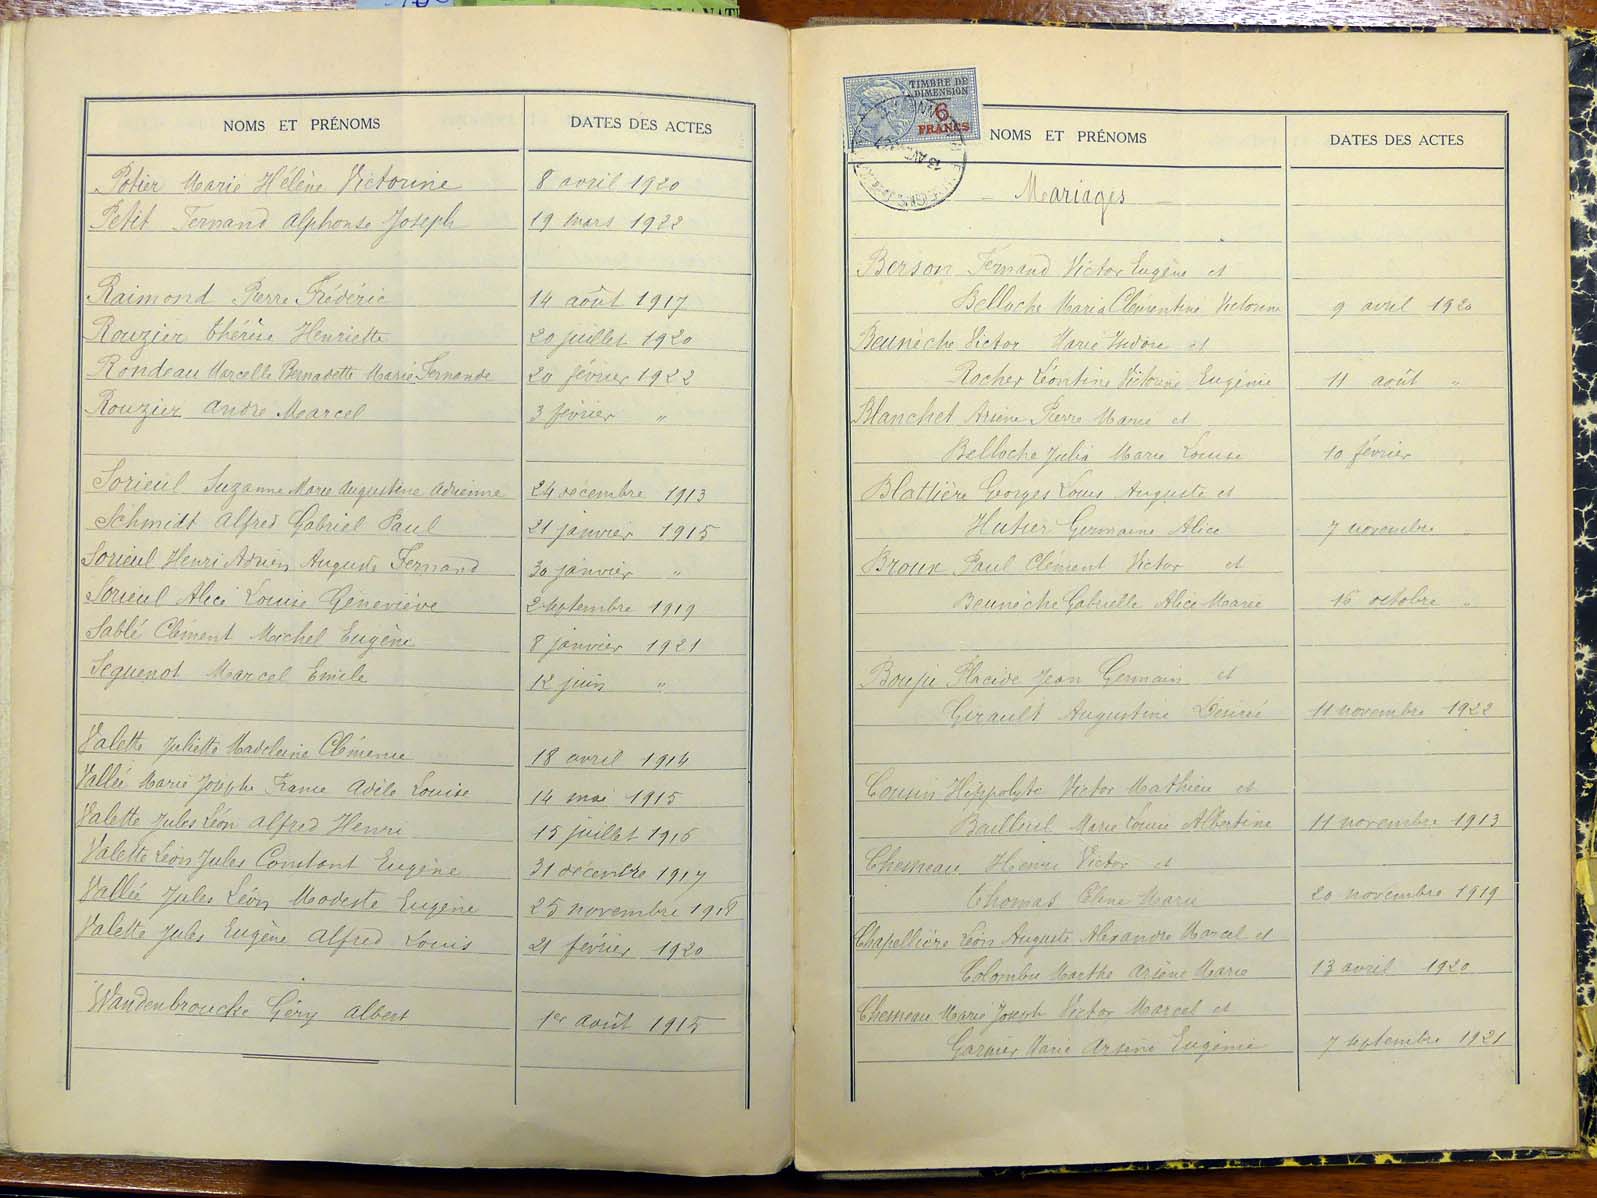 NOMS ET PRÉNOMS DATES DES ACTES
Potier Marie Hélène Victorine 8 avril 1920
Petit Fernand Alphonse Joseph 19 mars 1922
Raimond Pierre Frédéric 14 août 1917
Rouzier Thérèse Henriette 20 juillet 1920
Rondeau Marcelle Bernadette Marie Fernande 20 février 1922
Rouzier André Marcel 3 février "
Sorieul Suzanne Marie Augustine Adrienne 24 décembre 1913
Schmidt Alfred Gabriel Paul 21 janvier 1915
Sorieul Henri Adrien Auguste Fernand 30 janvier "
Sorieul Alice Louise Geneviève 2 septembre 1919
Sablé Clément Michel Eugène 8 janvier 1921
Seguenot Marcel Emile 12 juin "
Valette Juliette Madeleine Clémence 18 avril 1914
Vallée Marie Josephe Adèle Louise 14 mai 1915
Valette Jules Léon Alfred Henri 15 juillet 1916
Valette Léon Jules Constant Eugène 31 décembre 1917
Vallée Jules Léon Modeste Eugène 25 novembre 1918
Valette Jules Eugène Alfred Louis 21 février 1920
Wandenbroucke Géry Albert 1er août 1915
TIMBRE DE
DIMENSION
6
FRANCS
NOMS ET PRÉNOMS DATES DES ACTES
Mariages
Berson Fernand Victor Eugène et
Belloche Maria Clémentine Victorine 9 avril 1920
Beunèche Victor Marie Isidore et
Rocher Léontine Victorine Eugénie 11 août "
Blanchet Pierre Marie et
Belloche Julia Marie Louise 10 février "
Blottière Georges Louis Auguste et
Hutier Germaine Alice 7 novembre "
Broux Paul Clément Victor et
Beunèche Gabrielle Alice Marie 16 octobre "
Bouju Placide Jean Germain et
Girault Augustine Désirée 11 novembre 1922
Cousin Hippolyte Victor Mathieu et
Bailleul Marie Louise Albertine 11 novembre 1913
Chesneau Henri Victor et
Thomas Marie 20 novembre 1919
Chapellière Léon Auguste Alexandre Marcel et
Colombu Marthe Arsène Marie 13 avril 1920
Chesneau Marie Joseph Victor Marcel et
Garnier Marie Arsène Eugénie 7 septembre 1921